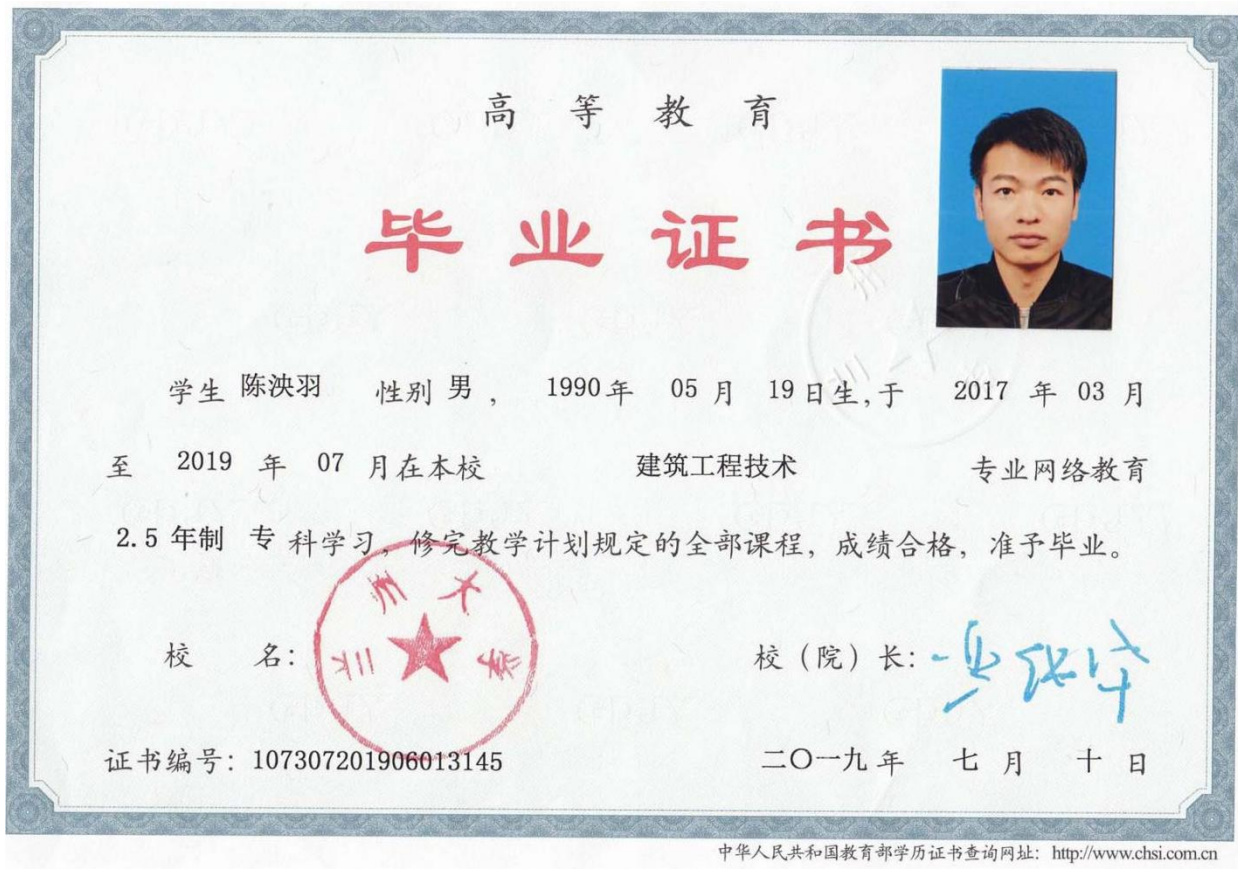 高等教育
毕业证书
学生 陈泱羽 性别 男 , 1990年 05 月 19日生,于 2017 年 03 月
至 2019 年 07 月在本校 建筑工程技术 专业网络教育
2.5 年制 专 科学习,修完教学计划规定的全部课程,成绩合格,准予毕业。
兰州大学
校 名: 校(院)长:
证书编号:107307201906013145 二〇一九年 七月 十日
中华人民共和国教育部学历证书查询网址:http://www.chsi.com.cn